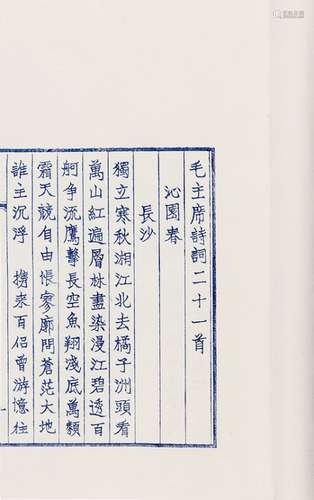 毛主席詩詞二十一首
沁園春
長沙
獨立寒秋湘江北去橘子洲頭看
萬山紅遍層林盡染漫江碧透百
舸争流鷹擊長空魚翔淺底萬類
霜天競自由悵寥廓問蒼茫大地
誰主沉浮 携來百侣曾游憶往
一